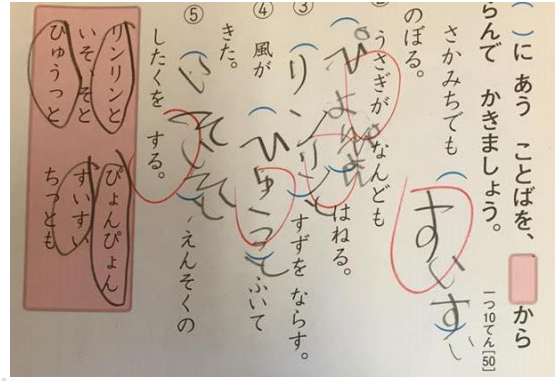 ( )に あう ことばを、 から
らんで かきましょう。
一つ10てん[50]
さかみちでも (すいすい
のぼる。
うさぎが なんども
(ぴょんぴょん) はねる。
③ (リンリンと) すずを ならす。
④ 風が (ひゅうっと) ふいて
きた。
⑤ (いそいそと)、えんそくの
したくを する。
リンリンと ぴょんぴょん
いそいそと すいすい
ひゅうっと ちっとも